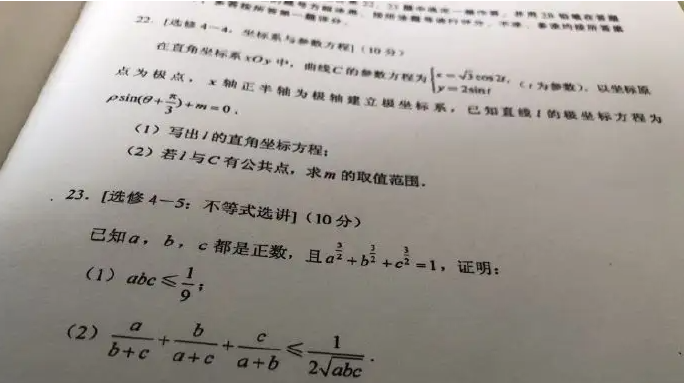 22. [选修 4—4: 坐标系与参数方程] (10 分)
在直角坐标系 xOy 中, 曲线 C 的参数方程为 { x = √3 cos2t, y = 2sint (t 为参数). 以坐标原
点为极点, x 轴正半轴为极轴建立极坐标系, 已知直线 l 的极坐标方程为
ρsin(θ + π/3) + m = 0.
(1) 写出 l 的直角坐标方程;
(2) 若 l 与 C 有公共点, 求 m 的取值范围.
23. [选修 4—5: 不等式选讲] (10 分)
已知 a, b, c 都是正数, 且 a^(3/2) + b^(3/2) + c^(3/2) = 1, 证明:
(1) abc ≤ 1/9;
(2) a/(b+c) + b/(a+c) + c/(a+b) ≤ 1/(2√abc).